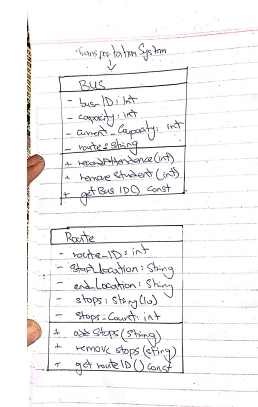 Transportation System
BUS
- bus-ID: int
- capacity: int
- current-Capacity: int
- route: string
+ recordAttendence(int)
+ remove student (int)
+ get Bus ID() const
Route
- route-ID: int
- Start-location: String
- end-location: String
- stops: String(10)
- stops-Count: int
+ add Stops (string)
+ remove stops (string)
+ get route ID () const